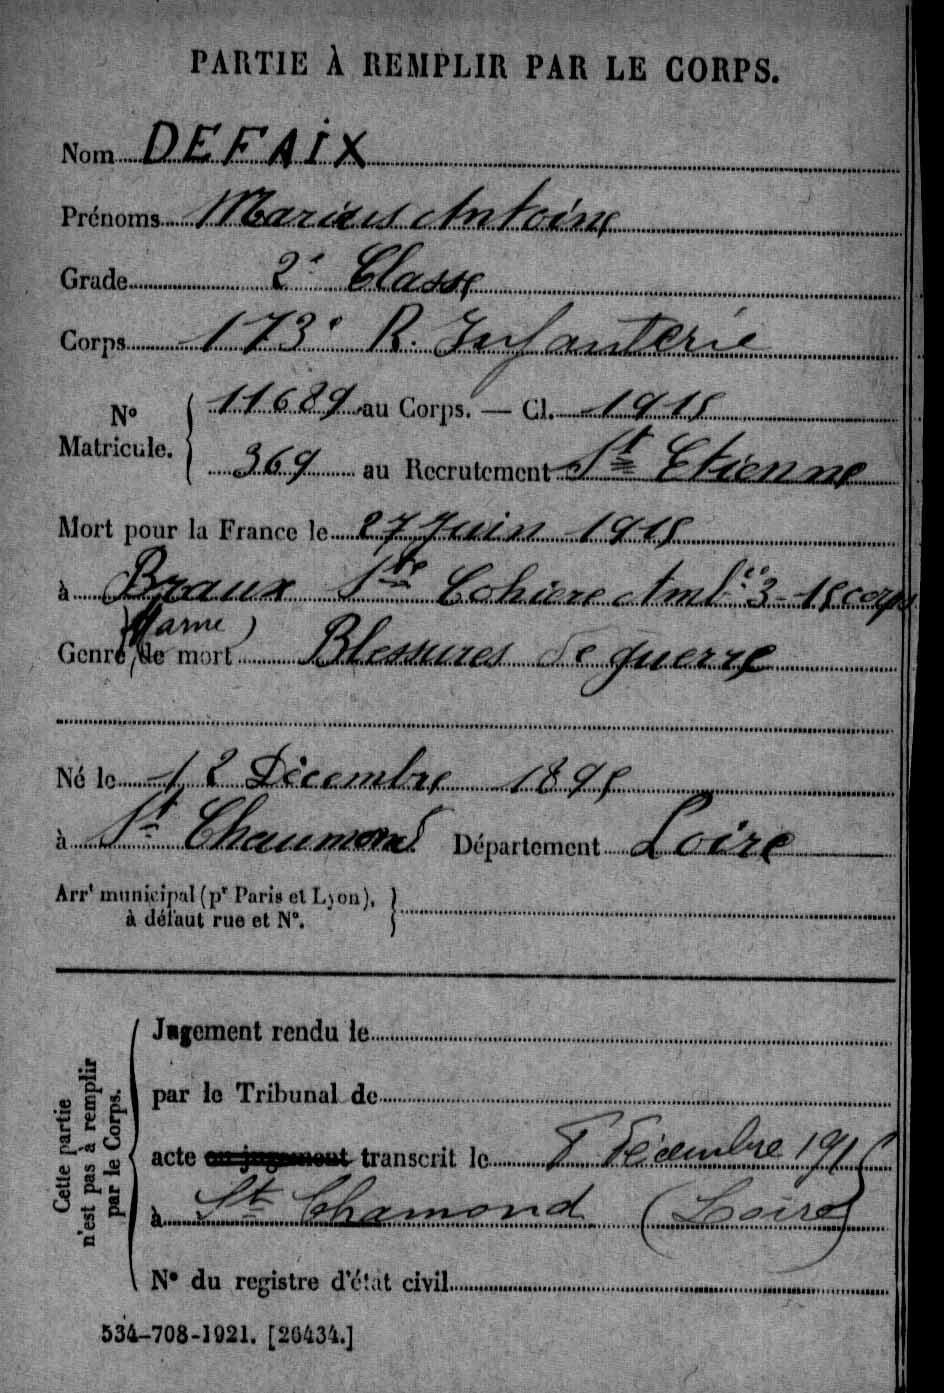 PARTIE À REMPLIR PAR LE CORPS.
Nom DEFAIX
Prénoms Marius Antoine
Grade 2e Classe
Corps 173e R. Infanterie
No Matricule. { 11689 au Corps. — Cl. 1915
369 au Recrutement St Etienne
Mort pour la France le 27 Juin 1915
à Braux Ste Cohiere Ambce 3-15 corps
(Marne)
Genre de mort Blessures de guerre
Né le 12 Décembre 1895
à St Chaumond Département Loire
Arrt municipal (pr Paris et Lyon),
à défaut rue et No.
Cette partie n'est pas à remplir par le Corps.
Jugement rendu le
par le Tribunal de
acte ou jugement transcrit le 8 Décembre 1915
à St Chamond (Loire)
No du registre d'état civil
534-708-1921. [26434.]